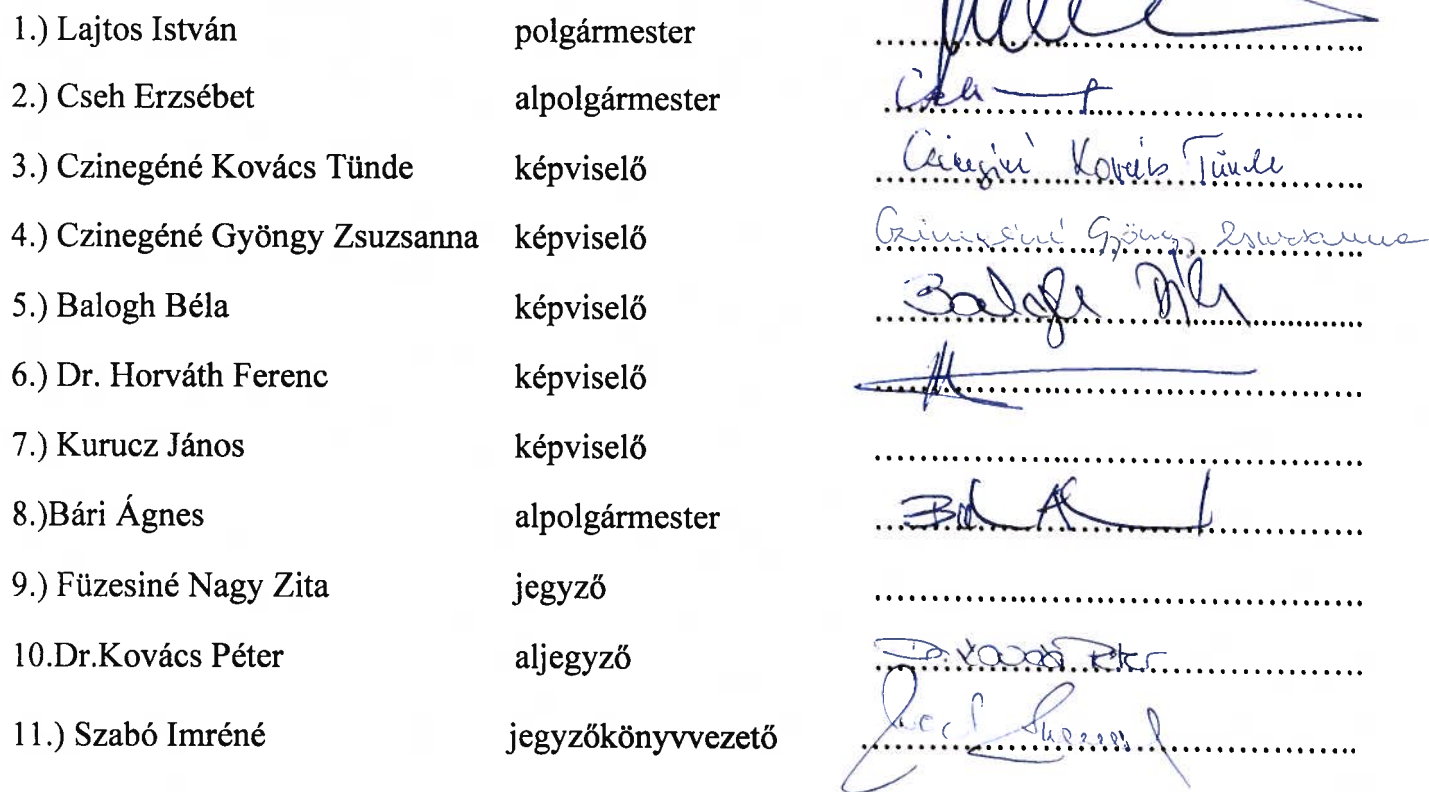 1.) Lajtos István polgármester ..........
2.) Cseh Erzsébet alpolgármester Cseh
3.) Czinegéné Kovács Tünde képviselő Czinegéné Kovács Tünde
4.) Czinegéné Gyöngy Zsuzsanna képviselő Czinegéné Gyöngy Zsuzsanna
5.) Balogh Béla képviselő Balogh Béla
6.) Dr. Horváth Ferenc képviselő ..........
7.) Kurucz János képviselő ..........
8.)Bári Ágnes alpolgármester ..........
9.) Füzesiné Nagy Zita jegyző ..........
10.Dr.Kovács Péter aljegyző Dr. Kovács Péter
11.) Szabó Imréné jegyzőkönyvvezető ..........